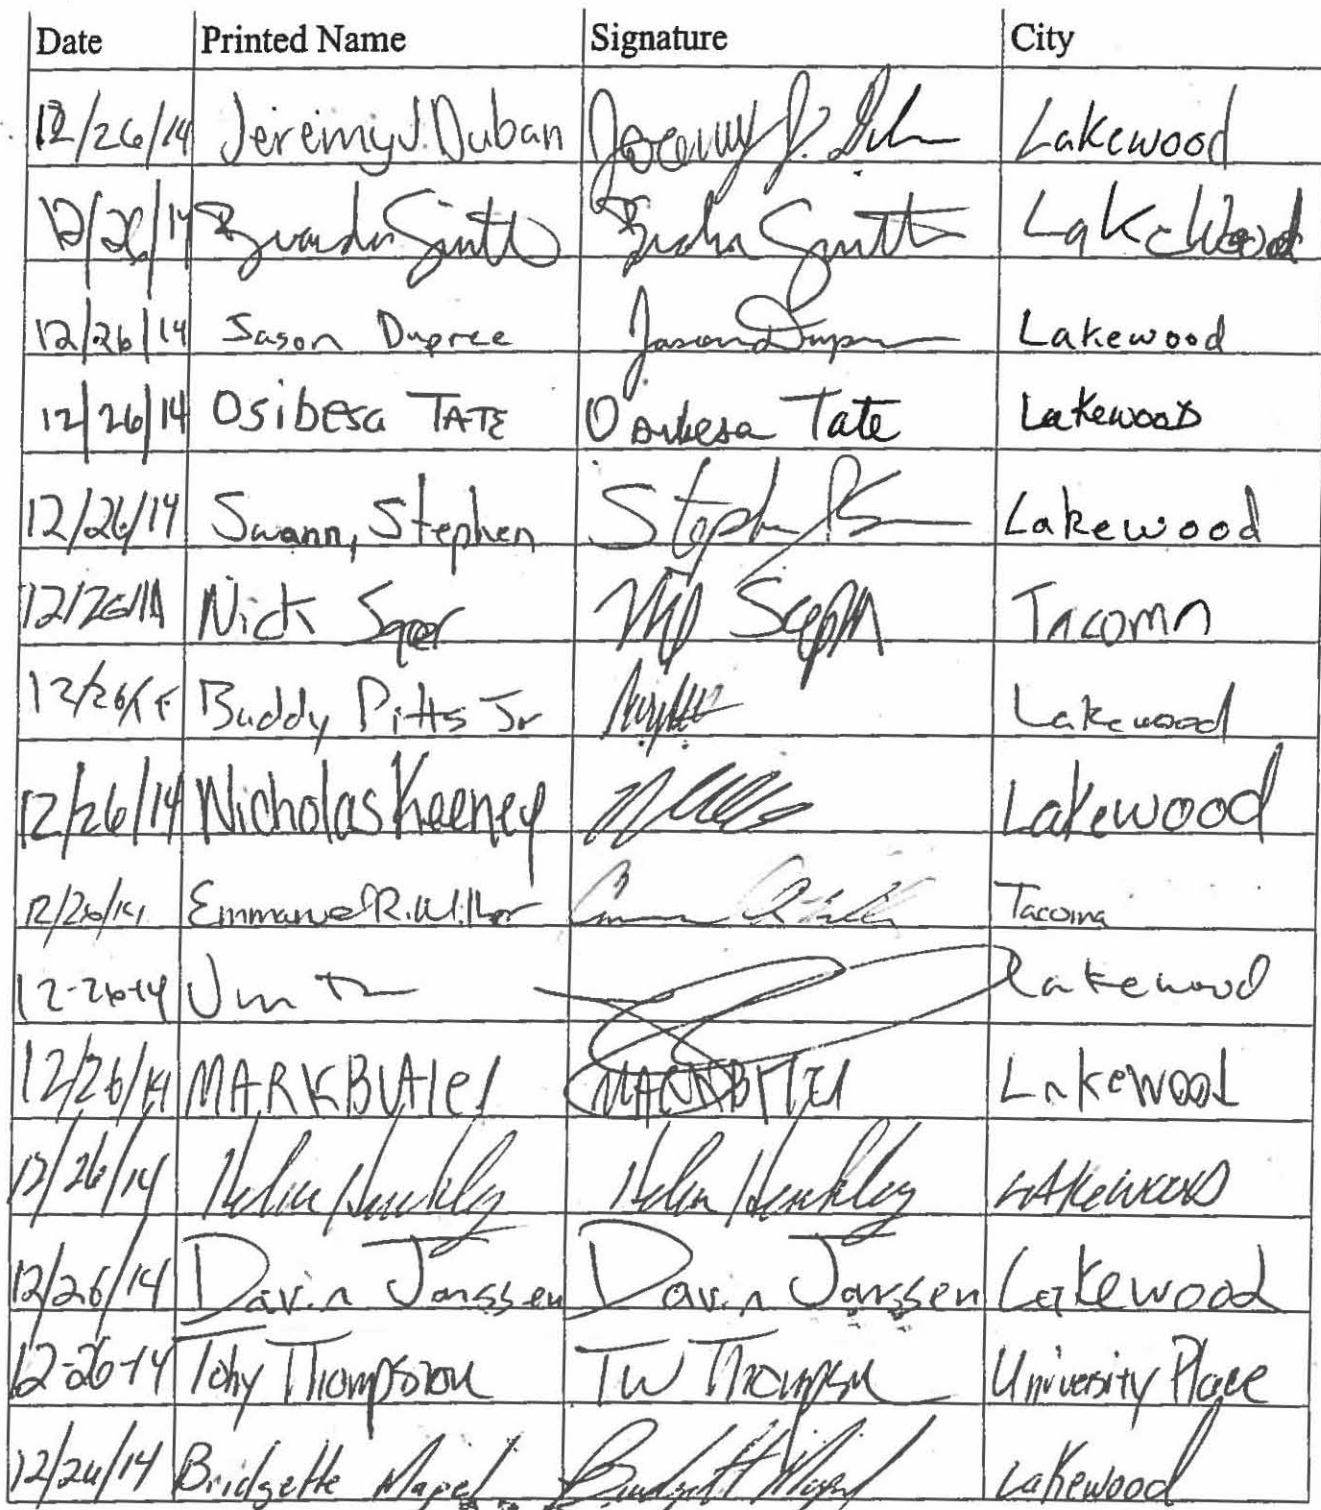 Date Printed Name Signature City
12/26/14 Jeremy J. Duban Jeremy J. Lakewood
12/26/14 Smith Smith Lakewood
12/26/14 Jason Dupree Jason Dupree Lakewood
12/26/14 Osibesa TATE Osibesa Tate Lakewood
12/26/14 Swann, Stephen Stephen Lakewood
12/26/14 Nick Tacoma
12/26/14 Buddy Pitts Jr Lakewood
12/26/14 Nicholas Keeney Lakewood
12/26/14 Emmanuel R. Tacoma
12-26-14 Lakewood
12/26/14 MARK BUtlel Lakewood
12/26/14 Helen Hinckley Helen Lakewood
12/26/14 Davin Janssen Davin Janssen Lakewood
12-26-14 Tony Thompson TW Thompson University Place
12/26/14 Bridgette Mapel Lakewood